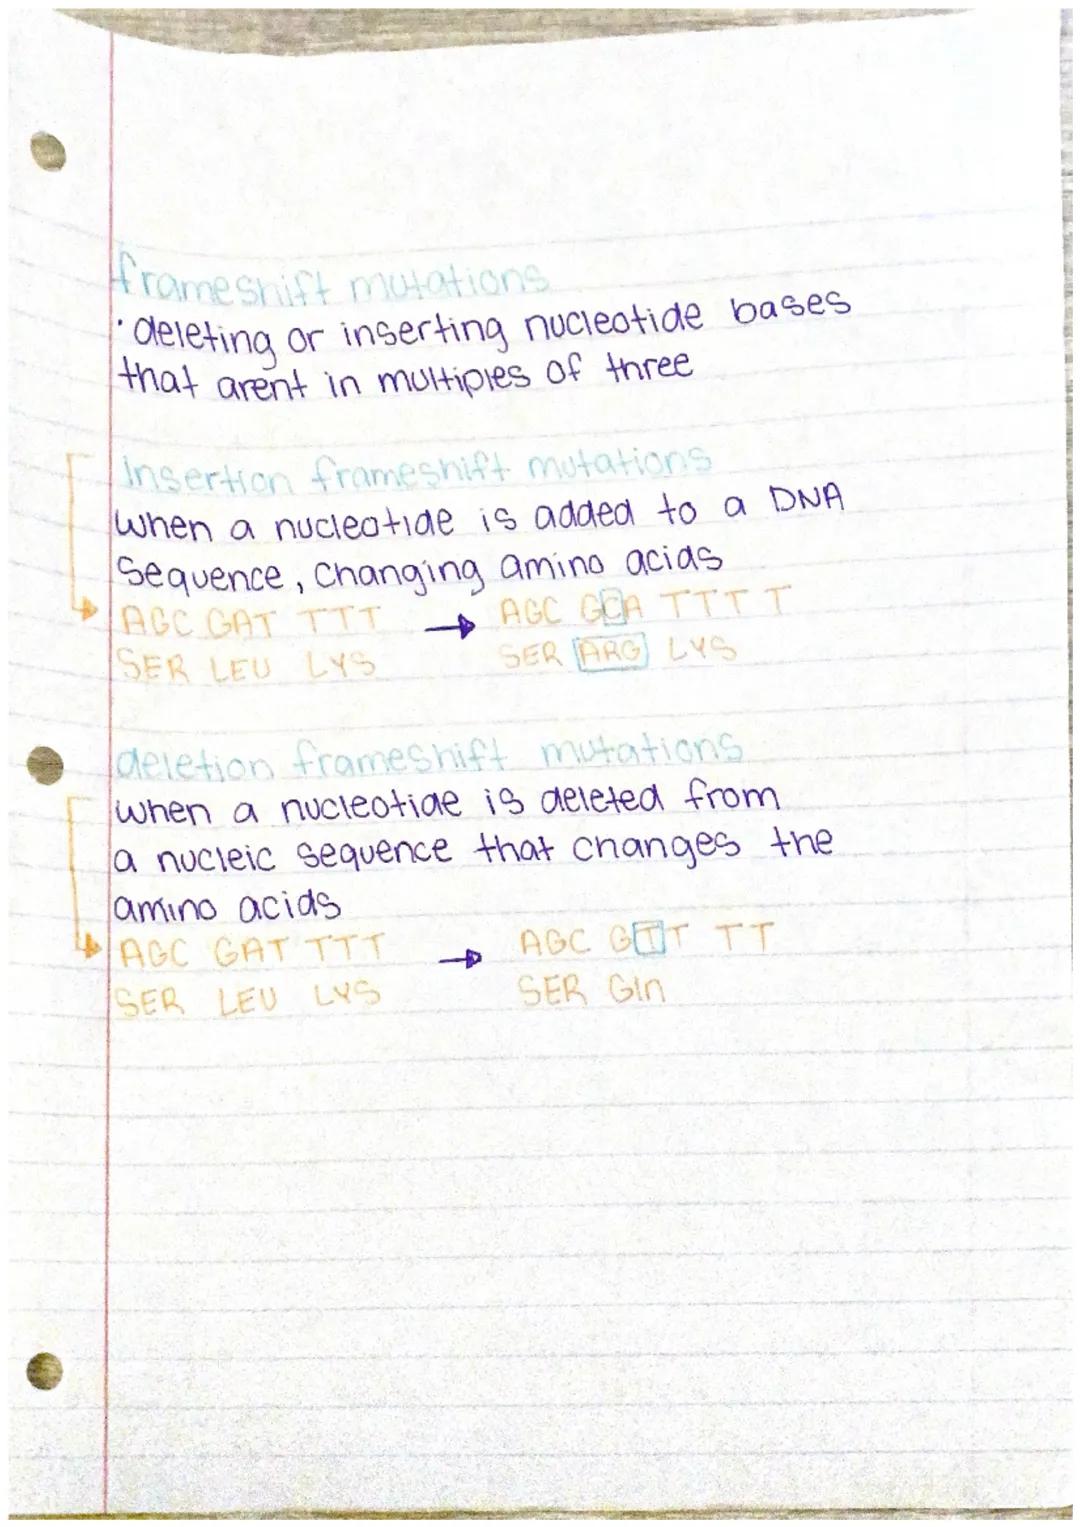 frameshift mutations
· deleting or inserting nucleotide bases
that arent in multiples of three
Insertion frameshift mutations
when a nucleotide is added to a DNA
sequence, changing amino acids
AGC GAT TTT → AGC GCA TTT T
SER LEU LYS SER ARG LYS
deletion frameshift mutations
when a nucleotide is deleted from
a nucleic sequence that changes the
amino acids
AGC GAT TTT → AGC GTT TT
SER LEU LYS SER Gln